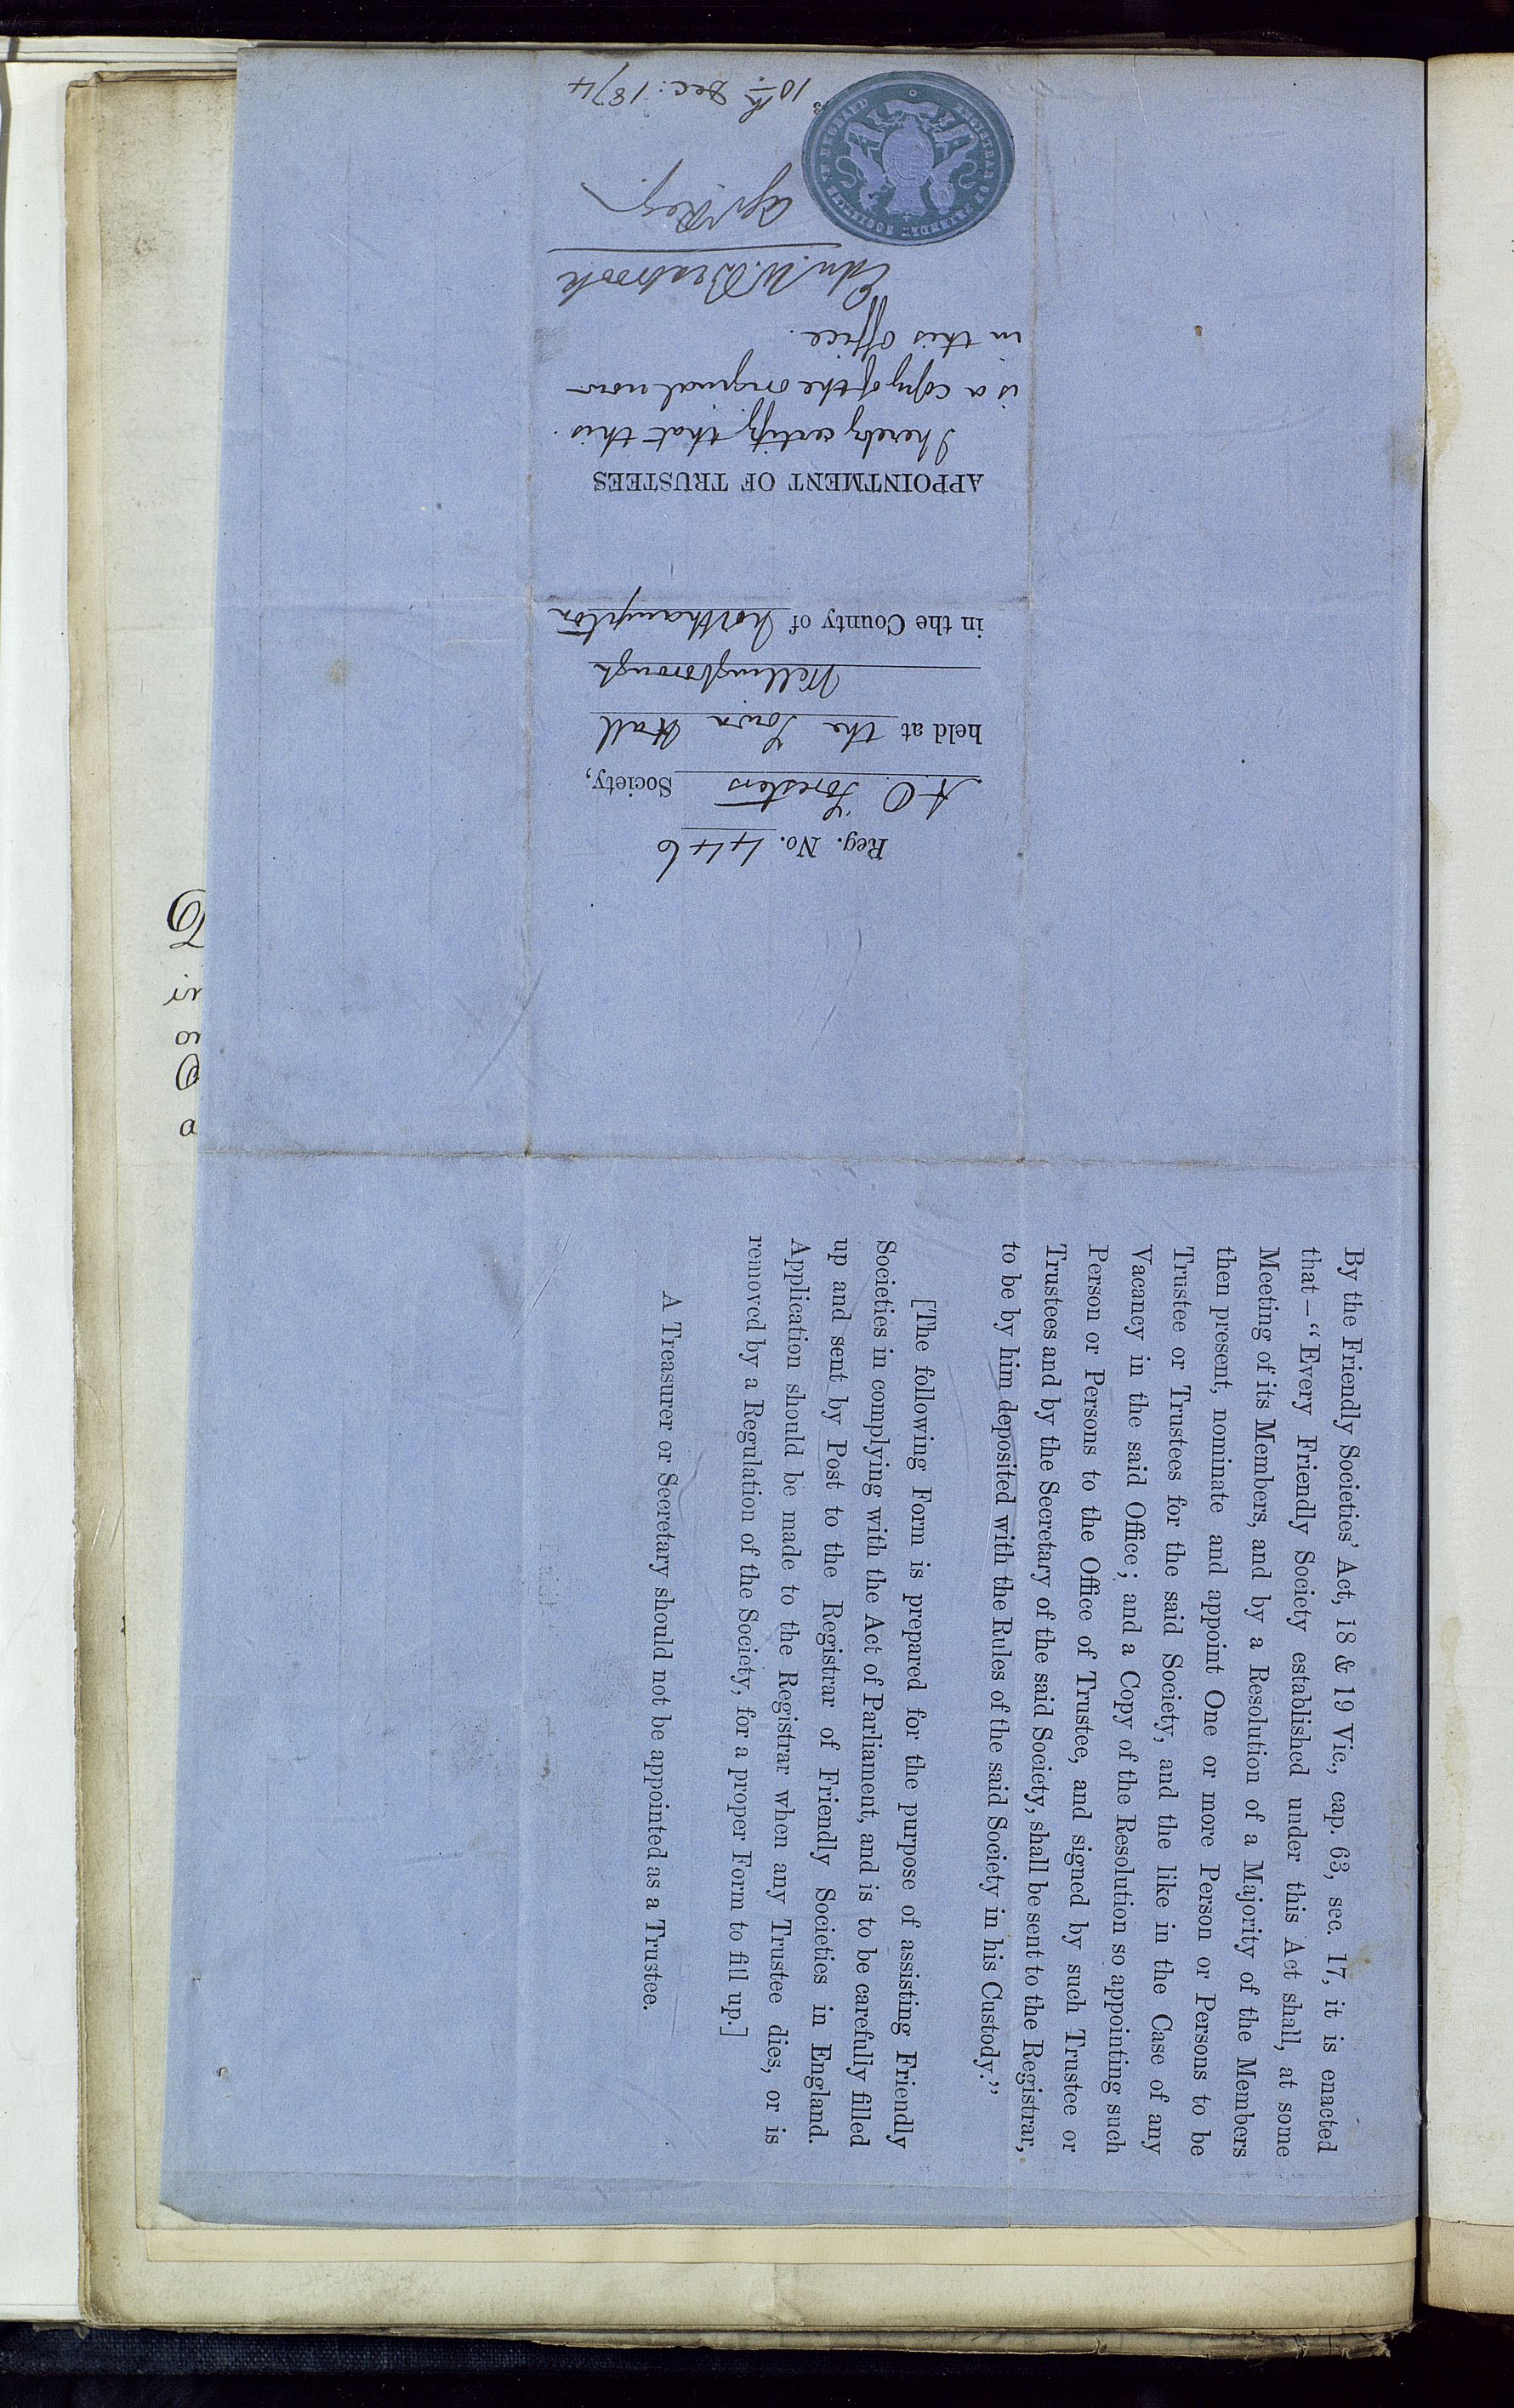 Reg. No. 446
A.O. Foresters Society,
held at the Town Hall
Wellingborough
in the County of Northampton
APPOINTMENT OF TRUSTEES
I hereby certify that this
is a copy of the original now
in this office.
Edw. W. Brabrook
Reg.
10th Dec: 1874
REGISTRAR OF FRIENDLY SOCIETIES IN ENGLAND
By the Friendly Societies' Act, 18 & 19 Vic., cap. 63, sec. 17, it is enacted
that—"Every Friendly Society established under this Act shall, at some
Meeting of its Members, and by a Resolution of a Majority of the Members
then present, nominate and appoint One or more Person or Persons to be
Trustee or Trustees for the said Society, and the like in the Case of any
Vacancy in the said Office; and a Copy of the Resolution so appointing such
Person or Persons to the Office of Trustee, and signed by such Trustee or
Trustees and by the Secretary of the said Society, shall be sent to the Registrar,
to be by him deposited with the Rules of the said Society in his Custody."
[The following Form is prepared for the purpose of assisting Friendly
Societies in complying with the Act of Parliament, and is to be carefully filled
up and sent by Post to the Registrar of Friendly Societies in England.
Application should be made to the Registrar when any Trustee dies, or is
removed by a Regulation of the Society, for a proper Form to fill up.]
A Treasurer or Secretary should not be appointed as a Trustee.